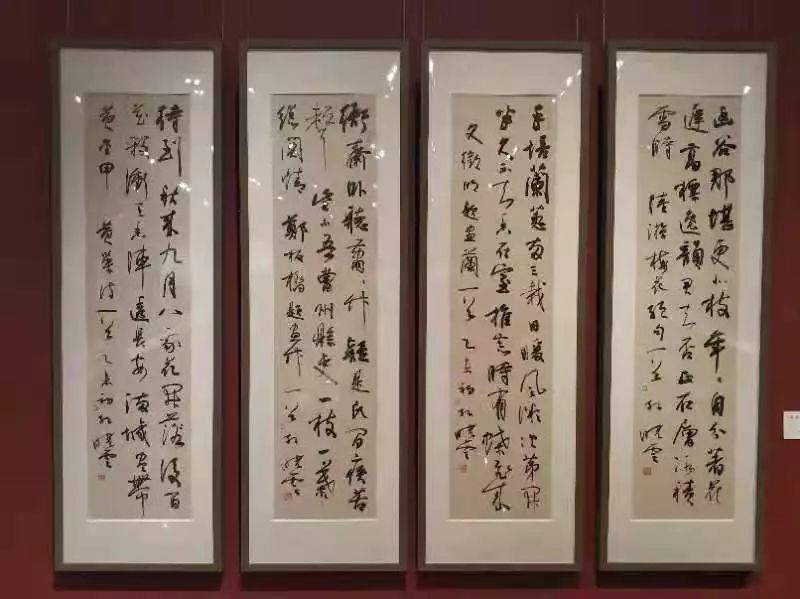 幽谷那堪更北枝年、自分著花
遲高標逸韻君知否正在層冰積
雪時 陸游梅花絕句一首 曉雲
手培蘭蕙兩三栽日暖風微次第開
坐久不知香在室推窗時有蝶飛來
文徵明題畫蘭一首 曉雲
衙齋卧聽蕭、竹疑是民間疾苦
聲些小吾曹州縣吏一枝一葉
總關情 鄭板橋題畫竹一首 曉雲
待到秋來九月八我花開落後百
花殺衝天香陣透長安滿城盡帶
黃金甲 黃巢詩一首 曉雲